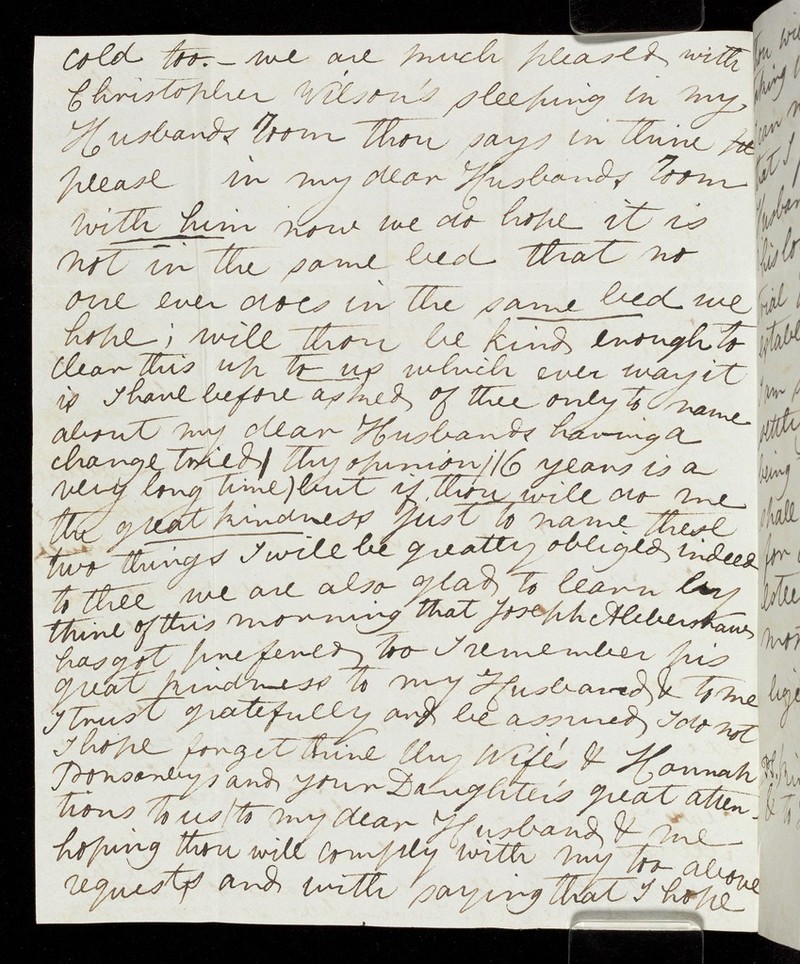 cold too. – we are much pleased with
Christopher Wilson's sleeping in my
Husbands Room thou says in thine
please in my dear Husbands Room
with him now we do hope it is
not in the same bed that no
one ever does in the same bed we
hope; will thou be kind enough to
clear this up to us which ever way it
is I have before asked of thee only to name
about my dear Husbands having a
change tried (thy opinion) (16 years is a
very long time) but if thou will do me
the great kindness just to name these
two things I will be greatly obliged indeed
to thee we are also glad to learn by
thine of this morning that Joseph
has got preferred too I remember his
great kindness to my Husband & to me
I trust gratefully and be assured I do not
I hope forget thine thy Wife's & Hannah
Ponsonbys and your Daughter's great atten-
tions to us (to my dear Husband & me
hoping thou will comply with my too above
requests and with saying that I hope